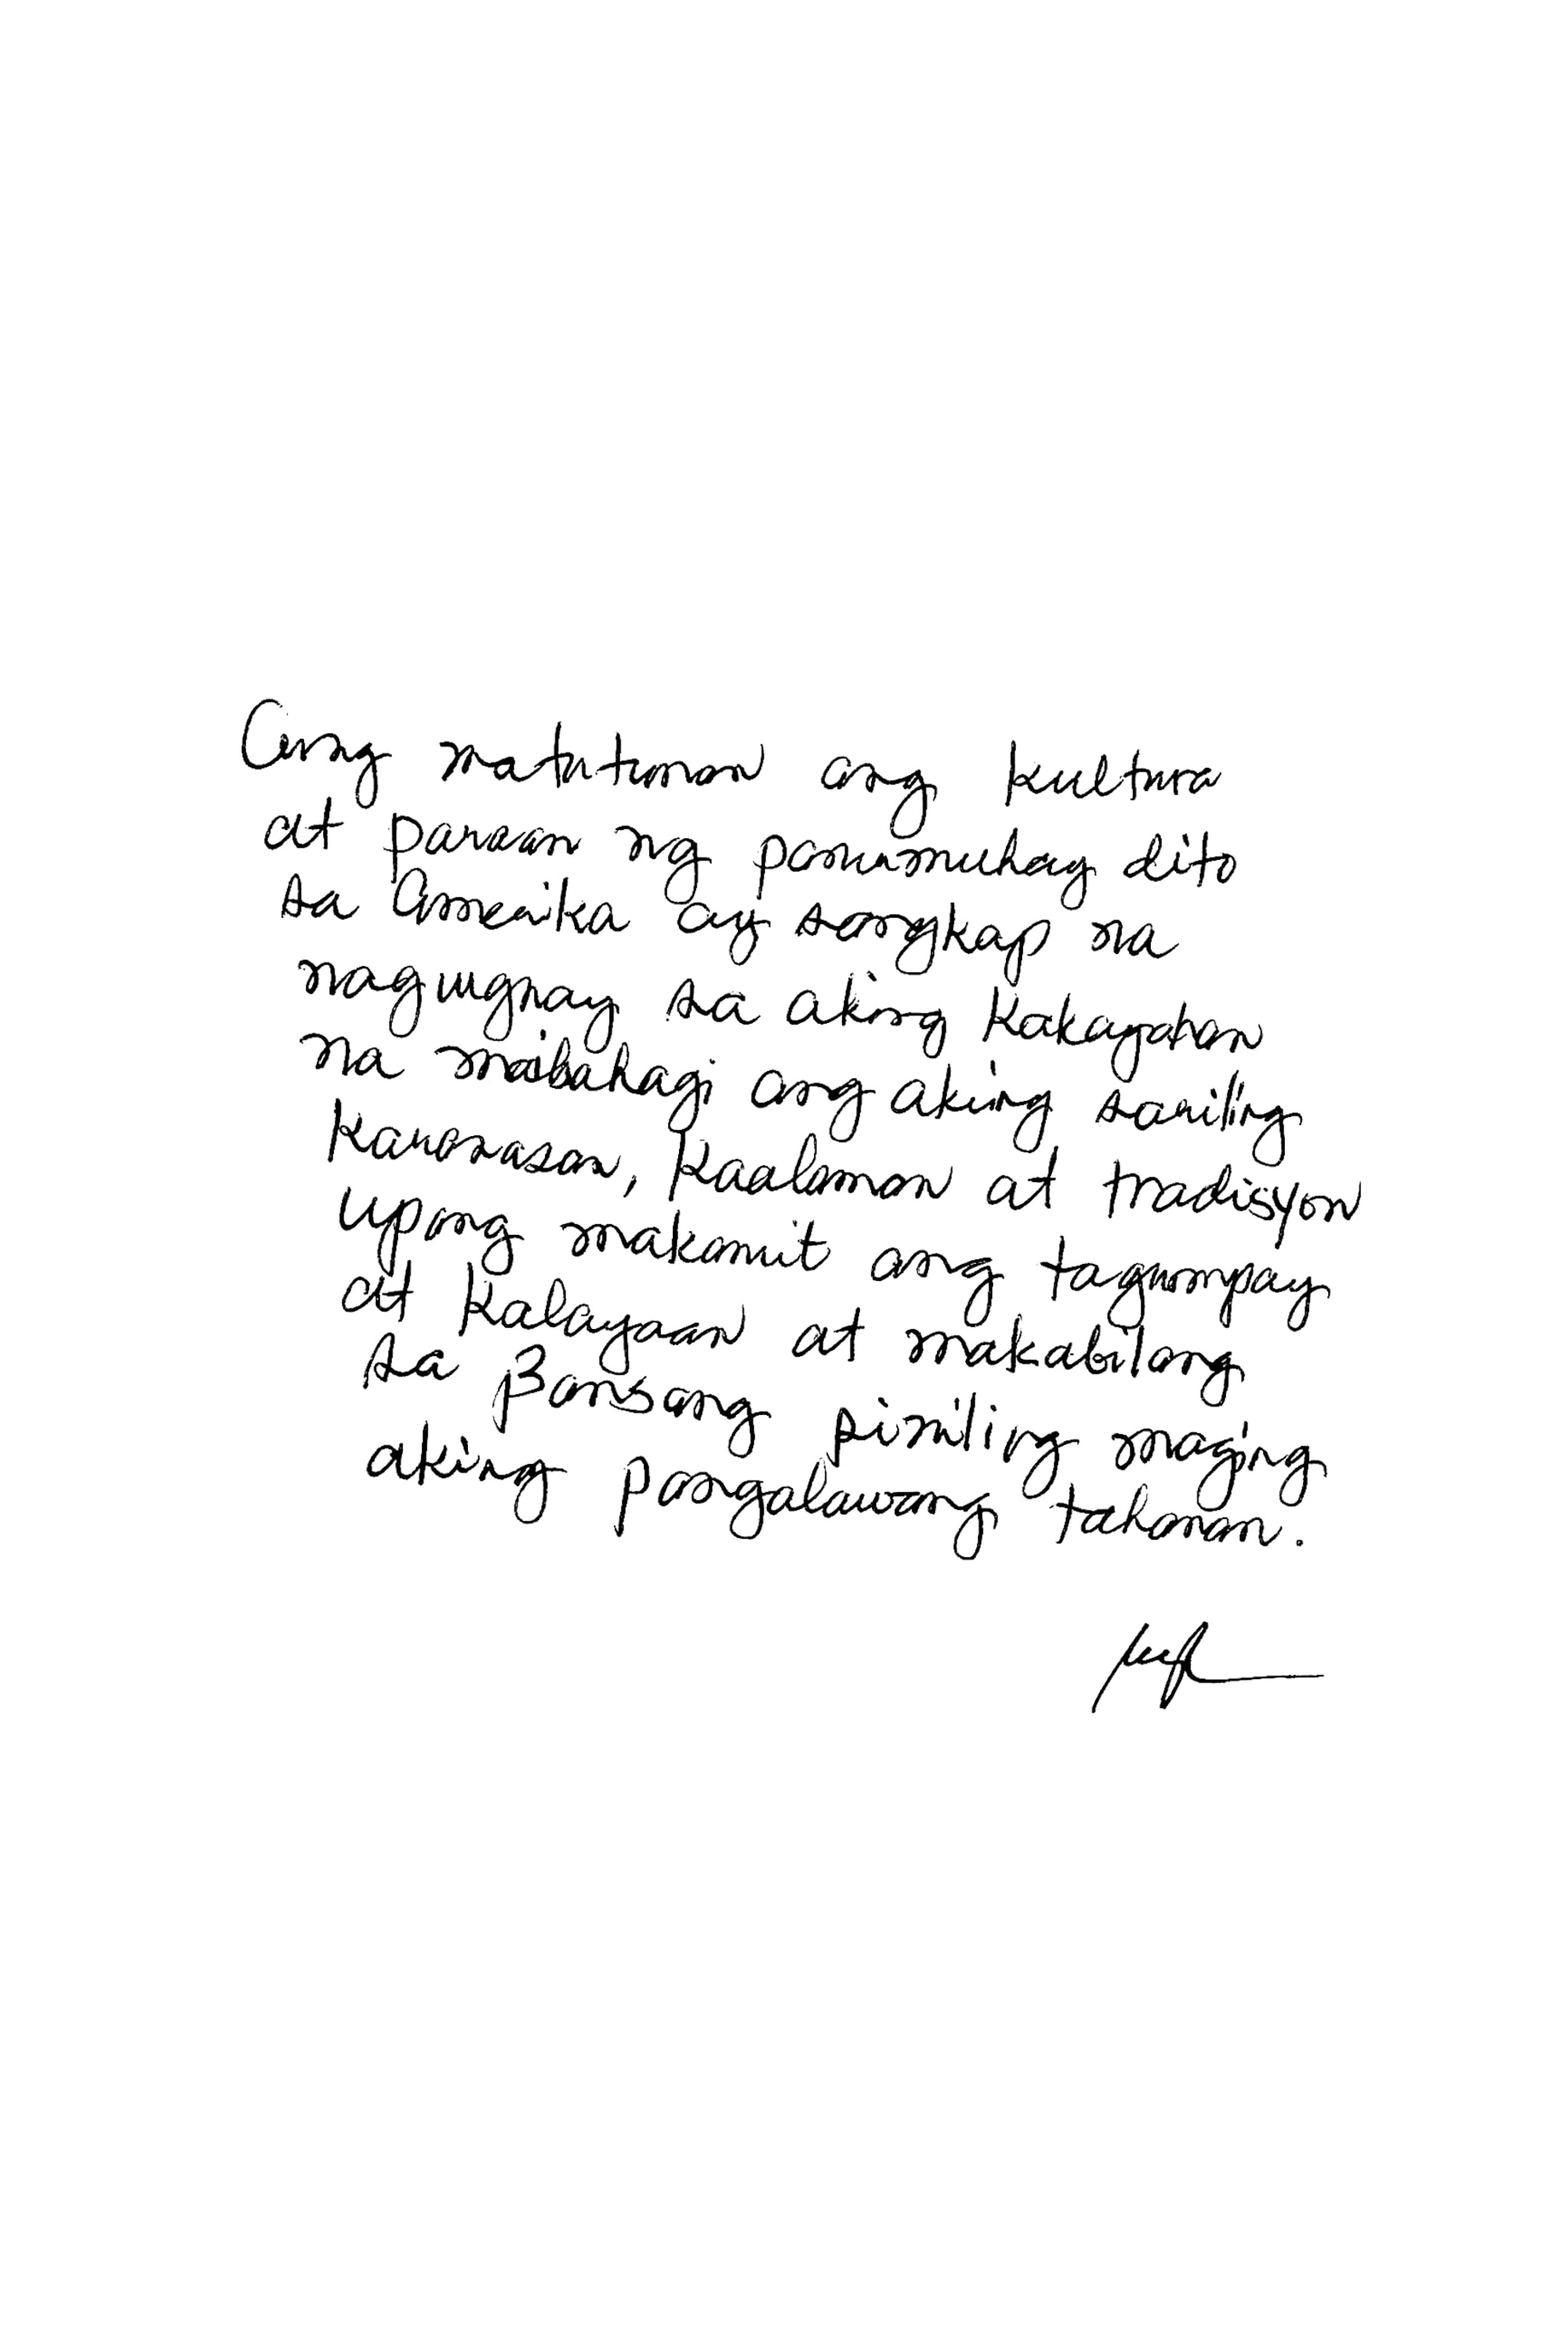 Ang matutunan ang kultura
at paraan ng pamumuhay dito
sa Amerika ay sangkap na
naguugnay sa aking kakayahan
na maibahagi ang aking sariling
karanasan, kaalaman at tradisyon
upang makamit ang tagumpay
at kalayaan at makabilang
sa Bansang piniling maging
aking pangalawang tahanan.